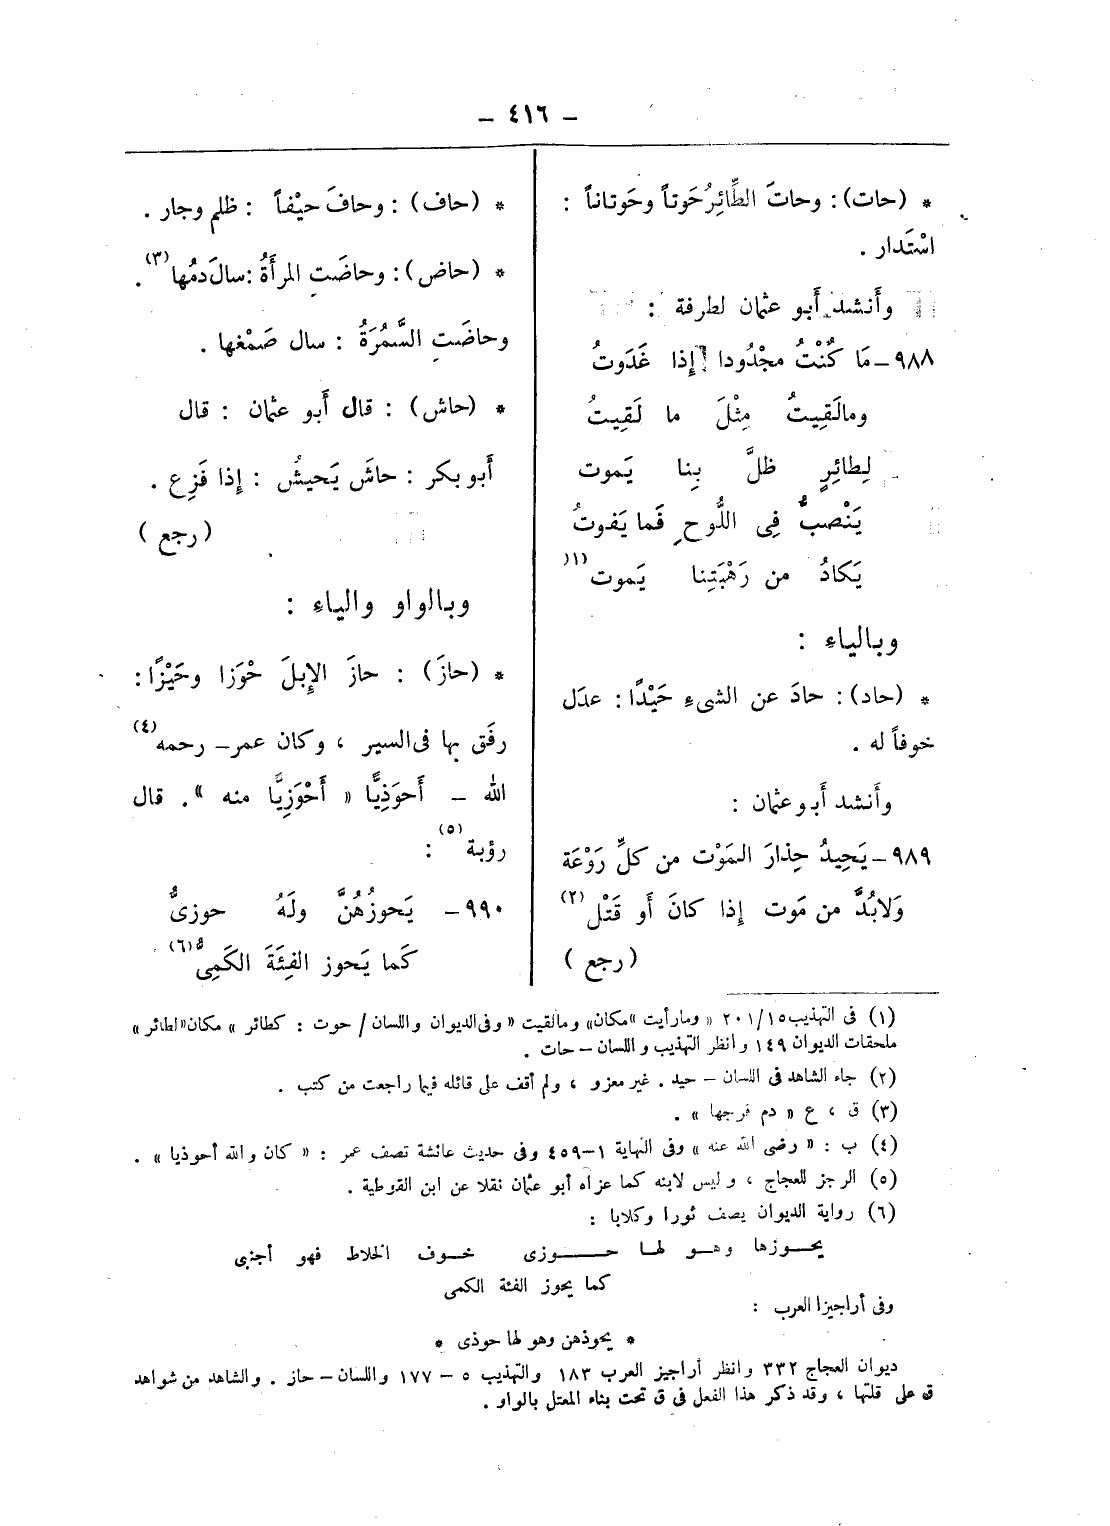 – ٤١٦ –
* (حات): وحاتَ الطَّائِرُ حَوتاً وحَوتاناً :
اسْتَدار .
وأَنشد أَبو عثمان لطرفة :
٩٨٨– مَا كُنْتُ مجْدُودا إِذا غَدَوتُ
ومالَقِيتُ مِثْلَ ما لَقِيتُ
لِطائِرٍ ظلَّ بِنا يَموت
يَنْصبُّ فِى اللُّوحِ فَما يَفوتُ
يَكادُ من رَهْبَتِنا يَموت (١)
وبالياء :
* (حاد): حادَ عن الشىءِ حَيْدًا: عدَل
خوفاً له .
وأَنشد أَبو عثمان :
٩٨٩– يَحِيدُ حِذارَ الموْت من كلِّ رَوْعَة
وَلابُدَّ من مَوت إِذا كانَ أَو قَتْل (٢)
(رجع)
* (حاف): وحافَ حيْفاً : ظلم وجار .
* (حاض): وحاضَتِ المرأَةُ: سالَ دمُها (٣) .
وحاضَتِ السَّمُرَةُ : سال صَمْغها .
* (حاش): قال أَبو عثمان : قال
أَبو بكر : حاشَ يَحيشُ : إِذا فَزِع .
(رجع)
وبالواو والياء :
* (حازَ) : حازَ الإِبلَ حْوَزا وحَيْزًا :
رفَق بها فى السير ، وكان عمر– رحمه (٤)
الله – أَحوَذِيًّا « أَحْوَزِيًّا منه » . قال
رؤبة (٥) :
٩٩٠– يَحوزُهُنَّ ولَهُ حوزىُّ
كَما يَحوز الفِئَةَ الكَمِىُّ (٦)
(١) فى التهذيب ٢٠١/١٥ « ومارأيت » مكان» ومالقيت « وفى الديوان واللسان / حوت : كطائر » مكان «لطائر »
ملحقات الديوان ١٤٩ وانظر التهذيب واللسان – حات .
(٢) جاء الشاهد فى اللسان – حيد . غير معزو ، ولم أقف على قائله فيما راجعت من كتب .
(٣) ق ، ع « دم فرجها » .
(٤) ب : « رضى الله عنه » وفى النهاية ١–٤٥٩ وفى حديث عائشة تصف عمر : « كان والله أحوذيا » .
(٥) الرجز للعجاج ، وليس لابنه كما عزاه أبو عثمان نقلا عن ابن القوطية .
(٦) رواية الديوان يصف ثورا وكلابا :
يحــوزها وهــو لهــا حــــوزى خــوف الخلاط فهو أجنبى
كما يحوز الفئة الكمى
وفى أراجيزا العرب :
* يحوذهن وهو لها حوذى *
ديوان العجاج ٣٣٢ وانظر أراجيز العرب ١٨٣ والتهذيب ٥ – ١٧٧ واللسان – حاز . والشاهد من شواهد
ق على قلتها ، وقد ذكر هذا الفعل فى ق تحت بناء المعتل بالواو .